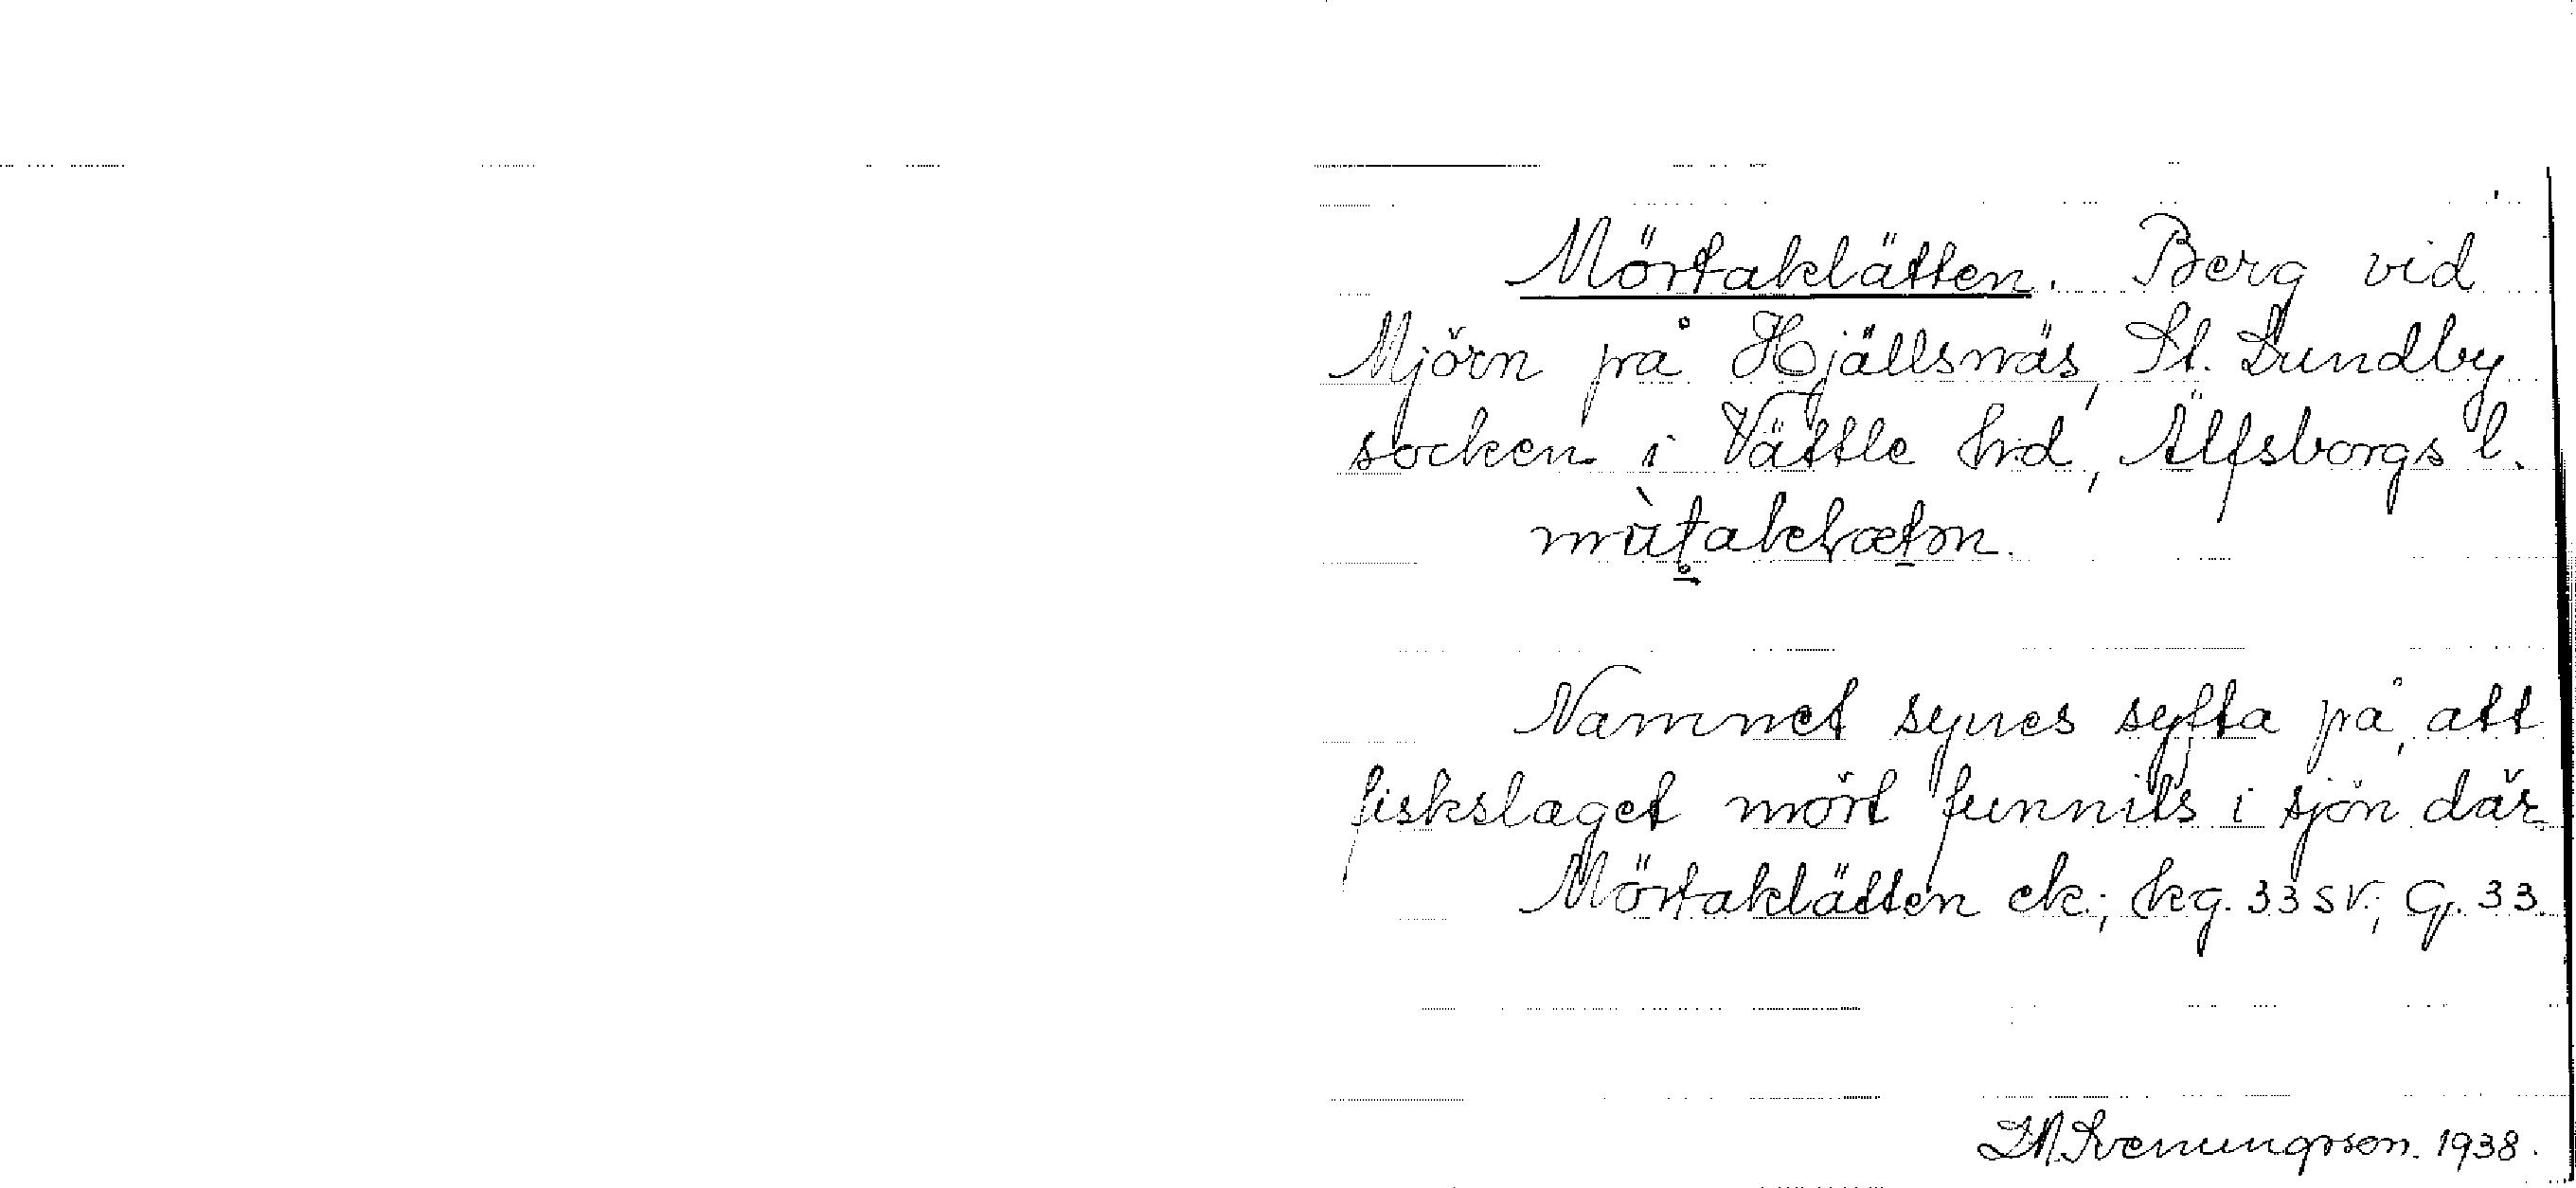 Mörtaklätten. Berg vid
Mjörn på Hjällsnäs, St. Lundby
socken i Vättle hrd, Älfsborgs l.
Namnet synes syfta på, att
fiskslaget mört funnits i sjön där.
Mörtaklätten ek.; hg. 33 SV.; G. 33.
Svenungsson. 1938.